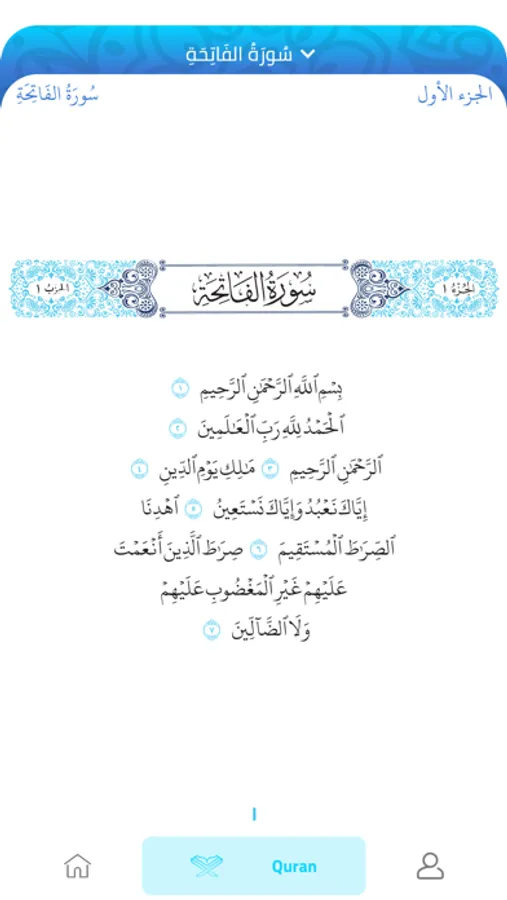 سُورَةُ الفَاتِحَةِ
الجزء الأول
سُورَةُ الفَاتِحَةِ
الجُزْءُ ١
سُورَةُ الفَاتِحَةِ
الحِزبُ ١
بِسْمِ ٱللَّهِ ٱلرَّحْمَٰنِ ٱلرَّحِيمِ ١
ٱلْحَمْدُ لِلَّهِ رَبِّ ٱلْعَٰلَمِينَ ٢
ٱلرَّحْمَٰنِ ٱلرَّحِيمِ ٣ مَٰلِكِ يَوْمِ ٱلدِّينِ ٤
إِيَّاكَ نَعْبُدُ وَإِيَّاكَ نَسْتَعِينُ ٥ ٱهْدِنَا
ٱلصِّرَٰطَ ٱلْمُسْتَقِيمَ ٦ صِرَٰطَ ٱلَّذِينَ أَنْعَمْتَ
عَلَيْهِمْ غَيْرِ ٱلْمَغْضُوبِ عَلَيْهِمْ
وَلَا ٱلضَّآلِّينَ ٧
١
Quran